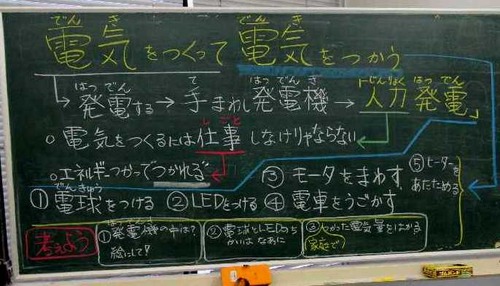 でん き でん き
電気をつくって電気をつかう
はつ でん て はつ でん き じんりょく はつ でん
→発電する→手まわし発電機→「人力発電」
し ごと
○電気をつくるには仕事しなけりゃならない
○エネルギーつかってつかれるぞ
でんきゅう
①電球をつける ②LEDをつける ③モータをまわす
④電車をうごかす
⑤ヒーターをあたためる
考えよう
①発電機の中は?
絵にして!
②電球とLEDのち
がいは なあに
③つかった電気量をはかる
家庭で